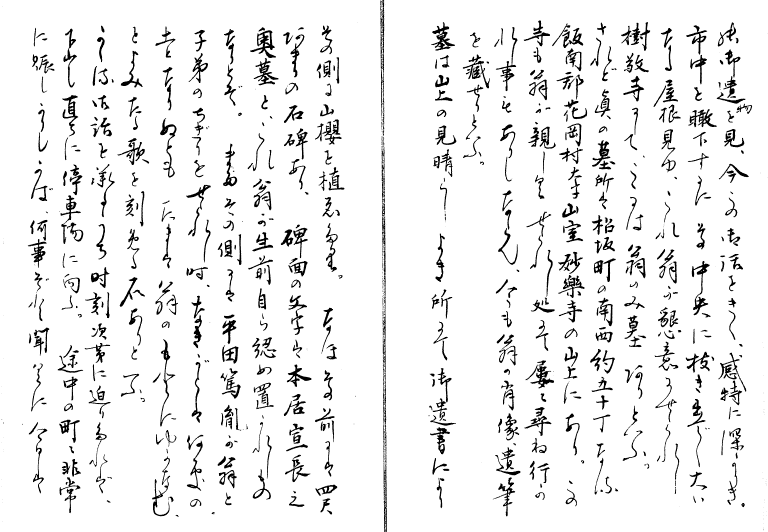 御遺物を見、今この御話をきく、感特に深かりき。
市中を瞰下すに其中央に抜き出でし大い
なる屋根見ゆ、これ翁が懇意にせられし
樹敬寺にて、こゝには翁のみ墓ありといふ。
されど眞の墓所は松坂町の南西約五十丁なる
飯南郡花岡村大字山室妙樂寺の山上にあり。この
寺も翁が親しくせられし処にて屢々尋ね行か
れし事もありしならん、今も翁の肖像、遺筆
を藏せりといふ。
墓は山上の見晴らしよき所にて御遺書により
その側に山櫻を植ゑたり。なほ其前には四尺
あまりの石碑あり、碑面の文字は本居宣長之
奥墓と、これ翁が生前自ら認め置かれしもの
なりとぞ。またその側には平田篤胤が翁と
子弟のちぎりをせられし時、なきがらは何処の
土となりぬとも たまは翁のもとにゆかなむ、
とよみたる歌を刻める石ありといふ。
かゝる御話を承りしうち時刻次第に迫りたれば、
下山し直ちに停車場に向ふ。途中の町々非常
に賑しかりしかば、何事ぞと聞くに今日は